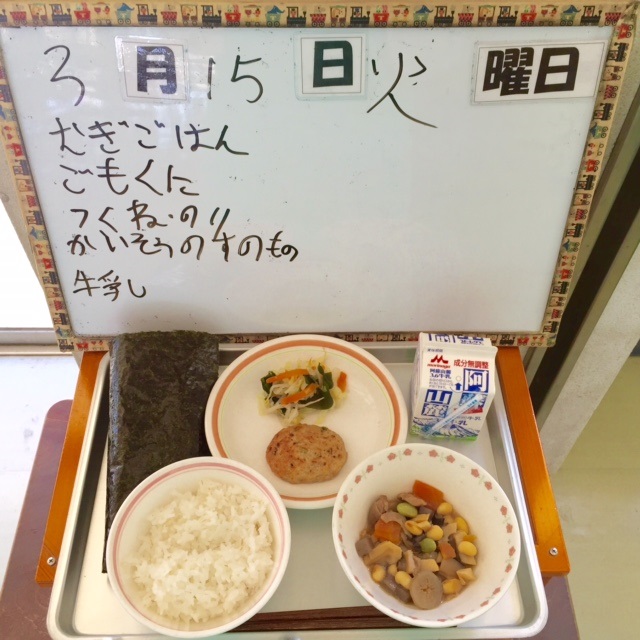 3月15日火曜日
むぎごはん
ごもくに
つくね・のり
かいそうのすのもの
牛乳し
成分無調整
阿